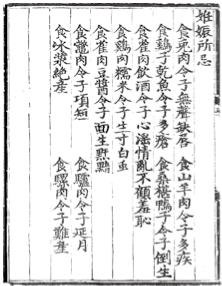 妊娠所忌
食兔肉令子無聲缺唇　食山羊肉令子多疾
食鷄子乾魚令子多瘡　食桑椹鴨子令子倒生
食雀肉飲酒令子心淫情亂不顧羞恥
食鷄肉糯米令子生寸白虫
食雀肉豆醬令子面生䵟黯
食鱉肉令子項短　食驢肉令子延月
食冰漿絶產　食騾肉令子難產